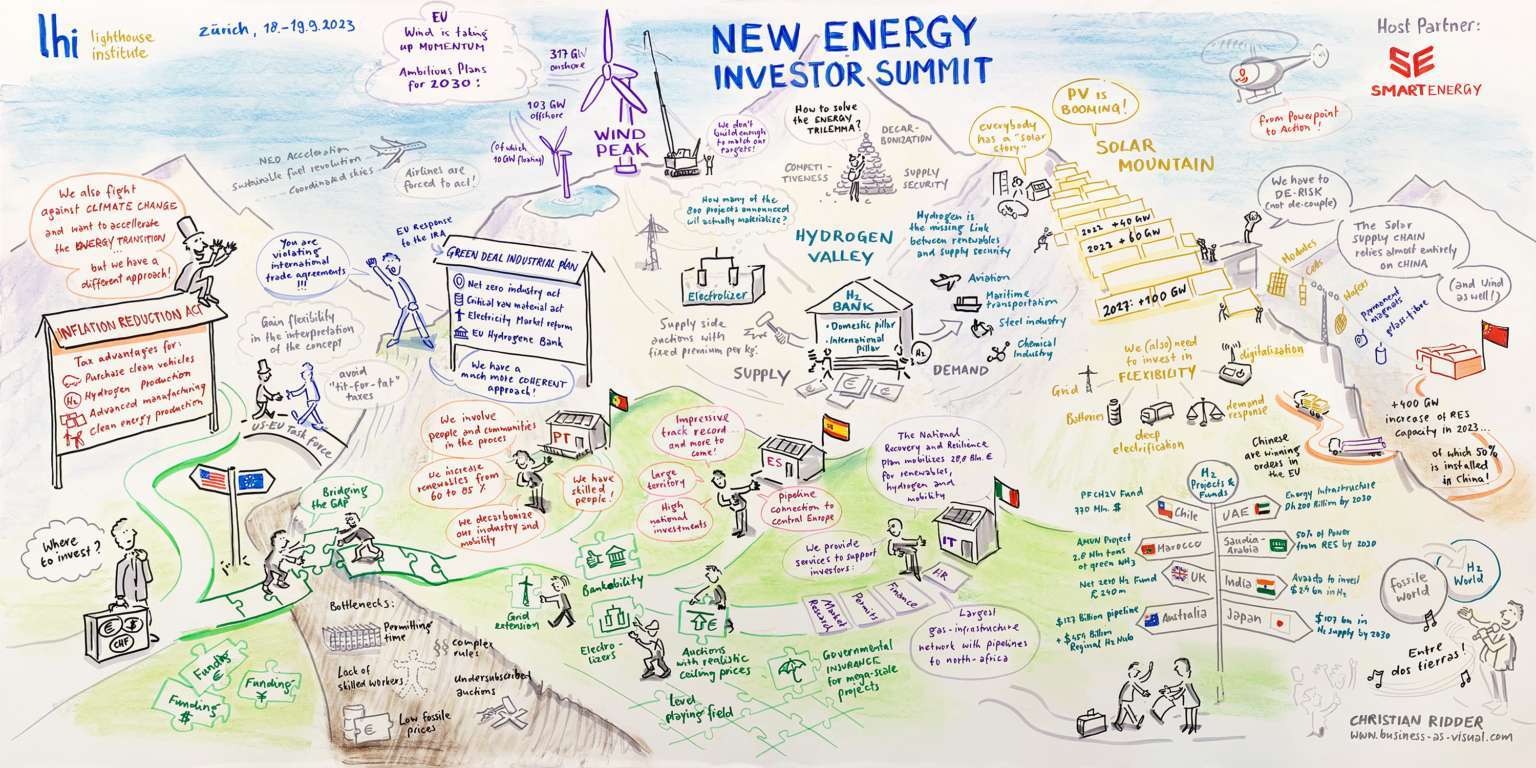 lhi lighthouse
institute
Zürich, 18.-19.9.2023
EU
Wind is taking
up MOMENTUM
Ambitious Plans
for 2030:
317 GW
onshore
103 GW
offshore
(of which
10 GW floating)
WIND
PEAK
We don't
build enough
to match our
targets!
NEW ENERGY
INVESTOR SUMMIT
Host Partner:
SE
SMARTENERGY
from Powerpoint
to Action!
NEO Acceleration
sustainable fuel revolution
Coordinated skies
Airlines are
forced to act!
How to solve
the ENERGY
TRILEMMA?
DECAR-
BONIZATION
COMPETI-
TIVENESS
SUPPLY
SECURITY
everybody
has a "solar
story"
PV is
BOOMING!
SOLAR
MOUNTAIN
2022 +40 GW
2023 +60 GW
2027: +100 GW
We have to
DE-RISK
(not de-couple)
The Solar
SUPPLY CHAIN
relies almost entirely
on CHINA
(and Wind
as well!)
Modules
Cells
Wafers
Permanent
magnets
glass-fibre
+400 GW
increase of RES
capacity in 2023...
of which 50%
is installed
in China!
Chinese
are winning
orders in
the EU
We also fight
against CLIMATE CHANGE
and want to accellerate
the ENERGY TRANSITION
...
but we have a
different approach!
INFLATION REDUCTION ACT
Tax advantages for:
Purchase clean vehicles
H₂ Hydrogen production
Advanced manufacturing
Clean energy production
You are
violating
international
trade agreements
!!!
EU Response
to the IRA
GREEN DEAL INDUSTRIAL PLAN
Net zero industry act
Critical raw material act
Electricity Market reform
EU Hydrogene Bank
We have a
much more COHERENT
approach!
Gain flexibility
in the interpretation
of the concept
avoid
"tit-for-tat"
taxes
US-EU Task force
How many of the
800 projects announced
will actually materialize?
HYDROGEN
VALLEY
Hydrogen is
the missing Link
between renewables
and supply security
Electrolizer
Supply side
auctions with
fixed premium per kg.
SUPPLY
H₂
BANK
• Domestic pillar
• International
pillar
H₂
€
€
DEMAND
Aviation
Maritime
transportation
Steel industry
Chemical
Industry
We (also) need
to invest in
FLEXIBILITY
Grid
Batteries
deep
electrification
demand
response
digitalization
We involve
people and communities
in the proces
PT
We increase
renewables from
60 to 85 %
We have
skilled
people!
We decarbonize
our industry and
mobility
Impressive
track record...
and more to
come!
ES
Large
territory
High
national
investments
pipeline
connection to
central Europe
The National
Recovery and Resilience
Plan mobilizes 28,8 Bln. €
for renewables,
hydrogen and
mobility
IT
We provide
services to support
investors:
Market
Research
Permits
Finance
HR
Largest
gas-infrastructure
network with pipelines
to north-africa
Where
to invest?
€ $
CHF
Bridging
the GAP
Funding
€
Funding
$
Funding
¥
Bottlenecks:
Permitting
time
§§ complex
rules
Lack of
skilled workers
undersubscribed
auctions
€
Low fossile
prices
Grid
extension
Bankability
Electro-
lizers
€
Auctions
with realistic
ceiling prices
Level
playing field
Governmental
INSURANCE
for mega-scale
projects
H₂
Projects
& Funds
PFCH2V Fund
770 Mln. $
Chile
UAE
Energy Infrastructure
Dh 200 Billion by 2030
AMUN Project
Marocco
of green NH₃
Saudia-
Arabia
50% of Power
from RES by 2030
Net zero H₂ Fund
£ 240 m
UK
India
to invest
in H₂
$127 Billion pipeline
Regional H₂ Hubs
Australia
Japan
$107 bn in
H₂ supply by 2030
fossile
World
H₂
World
Entre
dos tierras!
CHRISTIAN RIDDER
www.business-as-visual.com